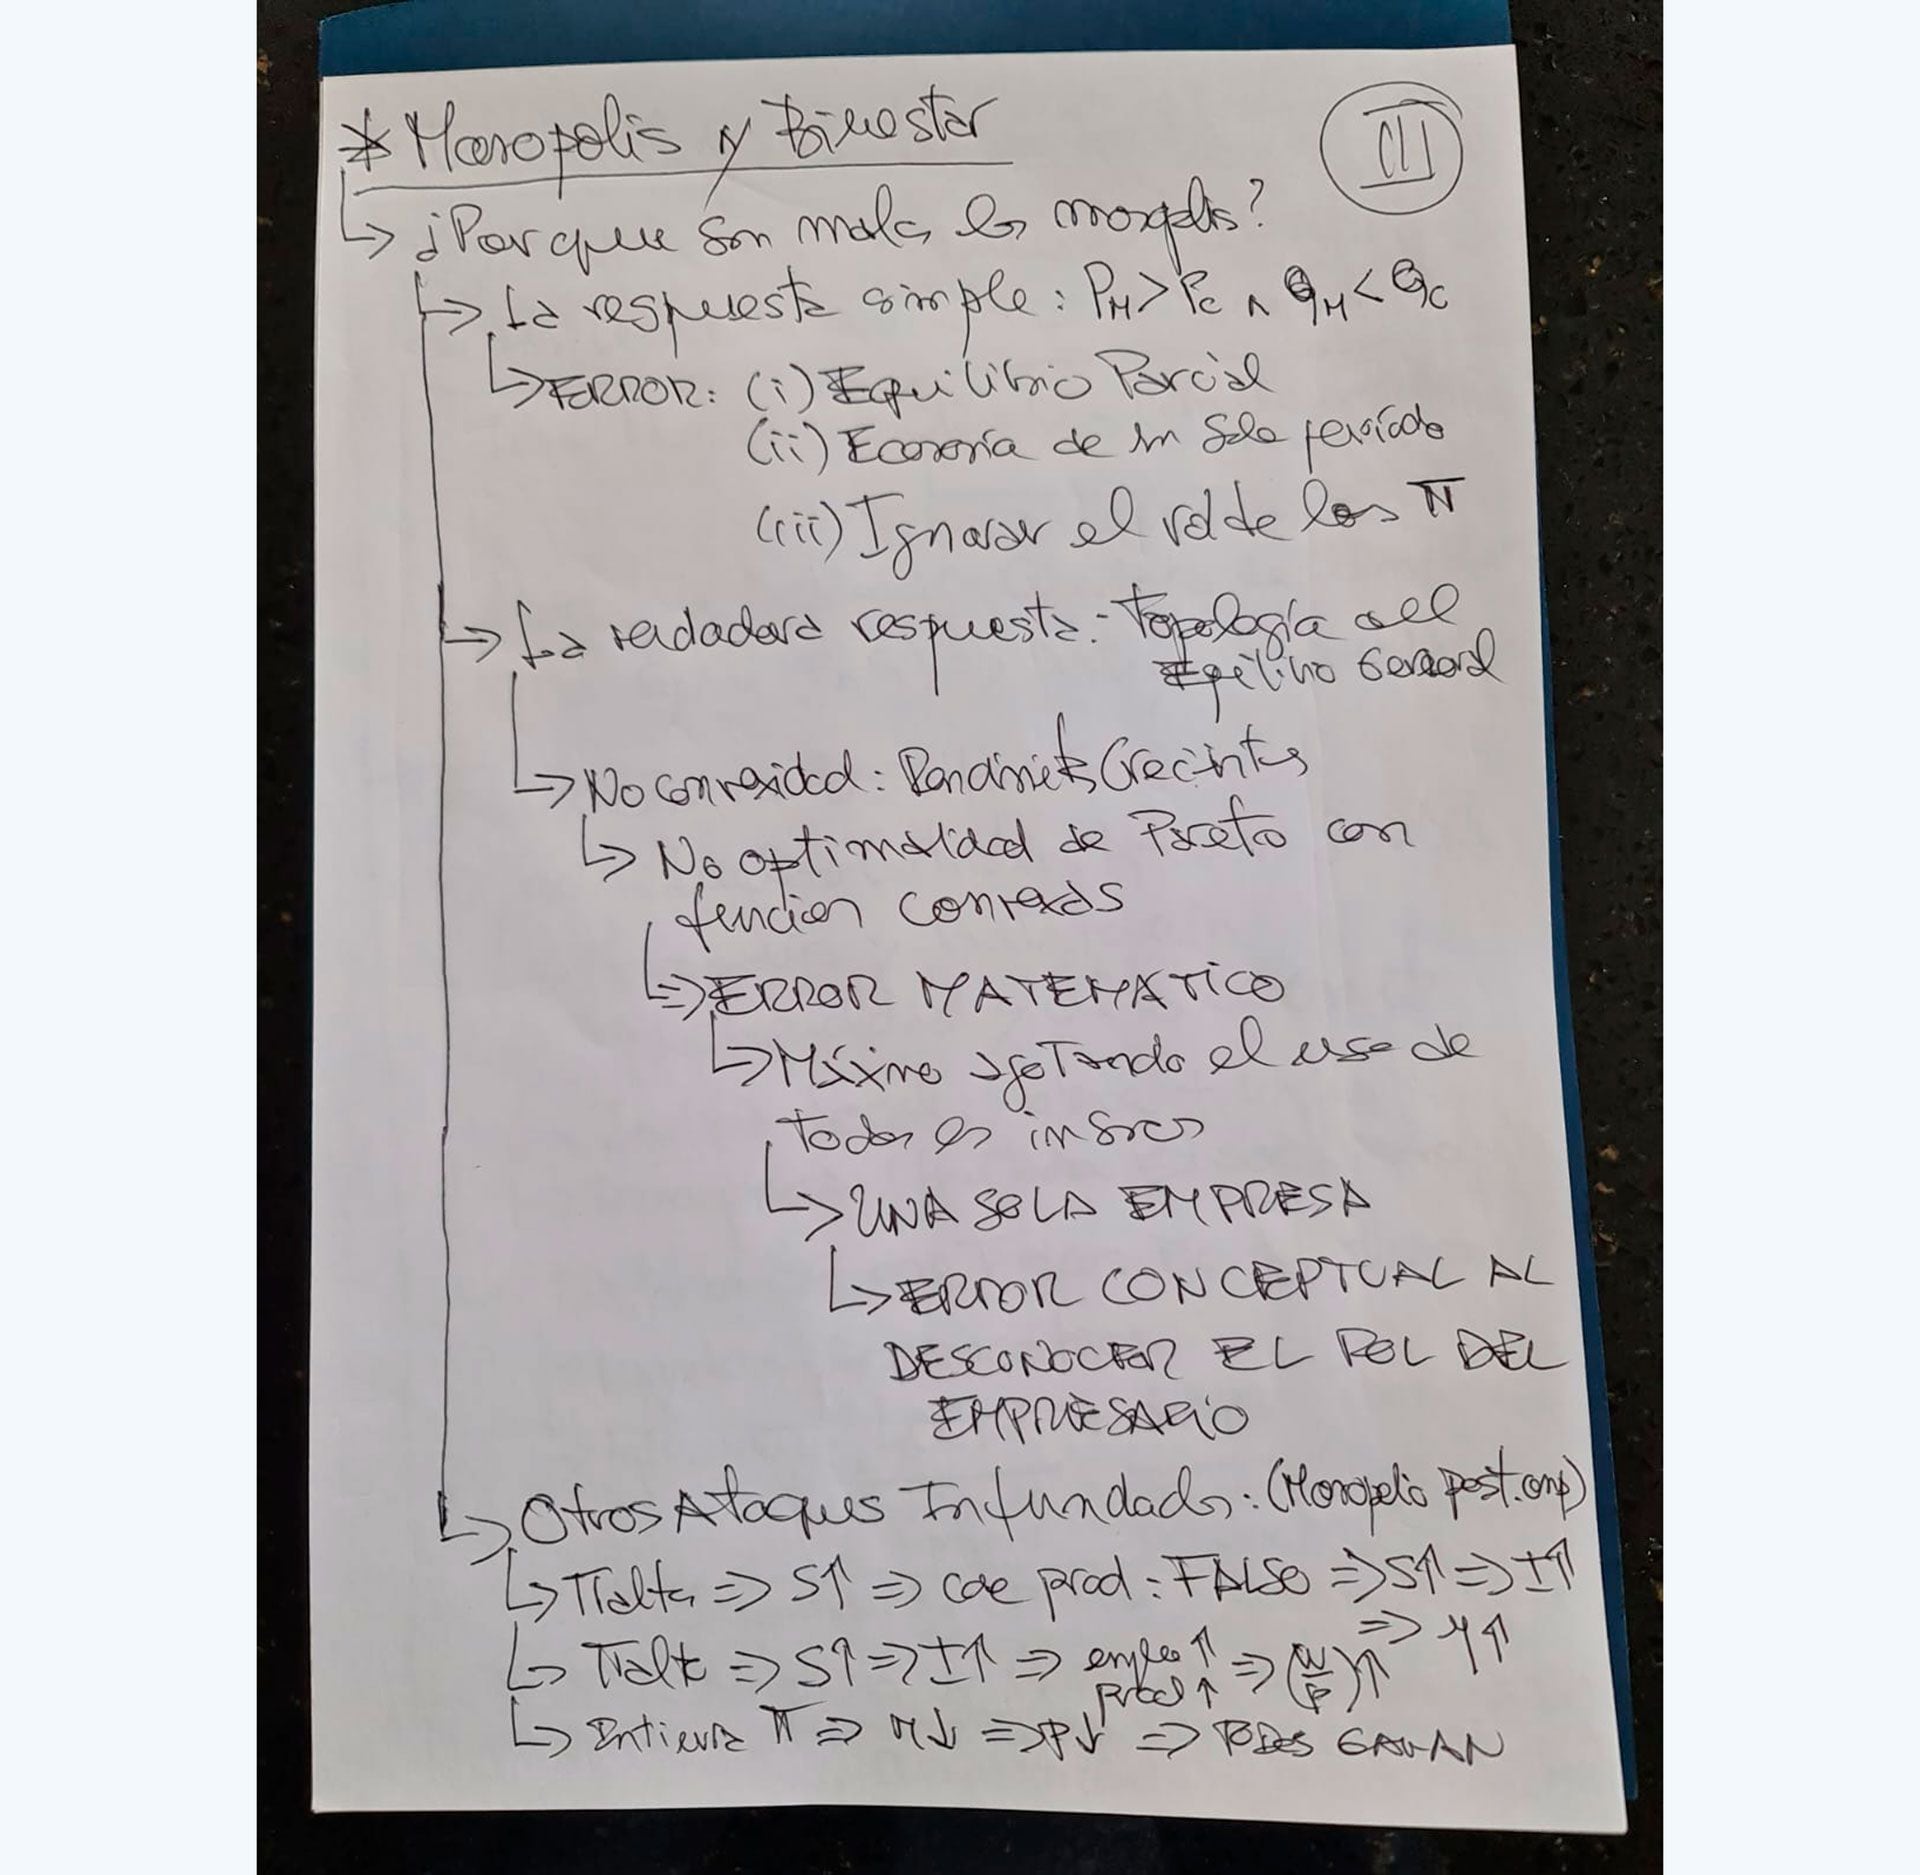 * Monopolis y Bienestar
III
¿Por que son malos los monopolis?
La respuesta simple: PM > PC ∧ QM < QC
ERROR: (i) Equilibrio Parcial
(ii) Economía de un Solo período
(iii) Ignorar el rol de los π
La verdadera respuesta: Topología del
Equilibrio General
No convexidad: Rendimientos Crecientes
No optimalidad de Pareto con
función convexas
ERROR MATEMATICO
Máximo agotando el uso de
todos los insumos
UNA SOLA EMPRESA
ERROR CONCEPTUAL AL
DESCONOCER EL ROL DEL
EMPRESARIO
Otros Ataques Infundados: (Monopolio post.)
π alta => S↑ => cae prod: FALSO => S↑ => I↑
=> y↑
π alta => S↑ => I↑ => empleo↑ prod↑ => (W/P)↑
π => ↓ => P↓ => TODOS GANAN